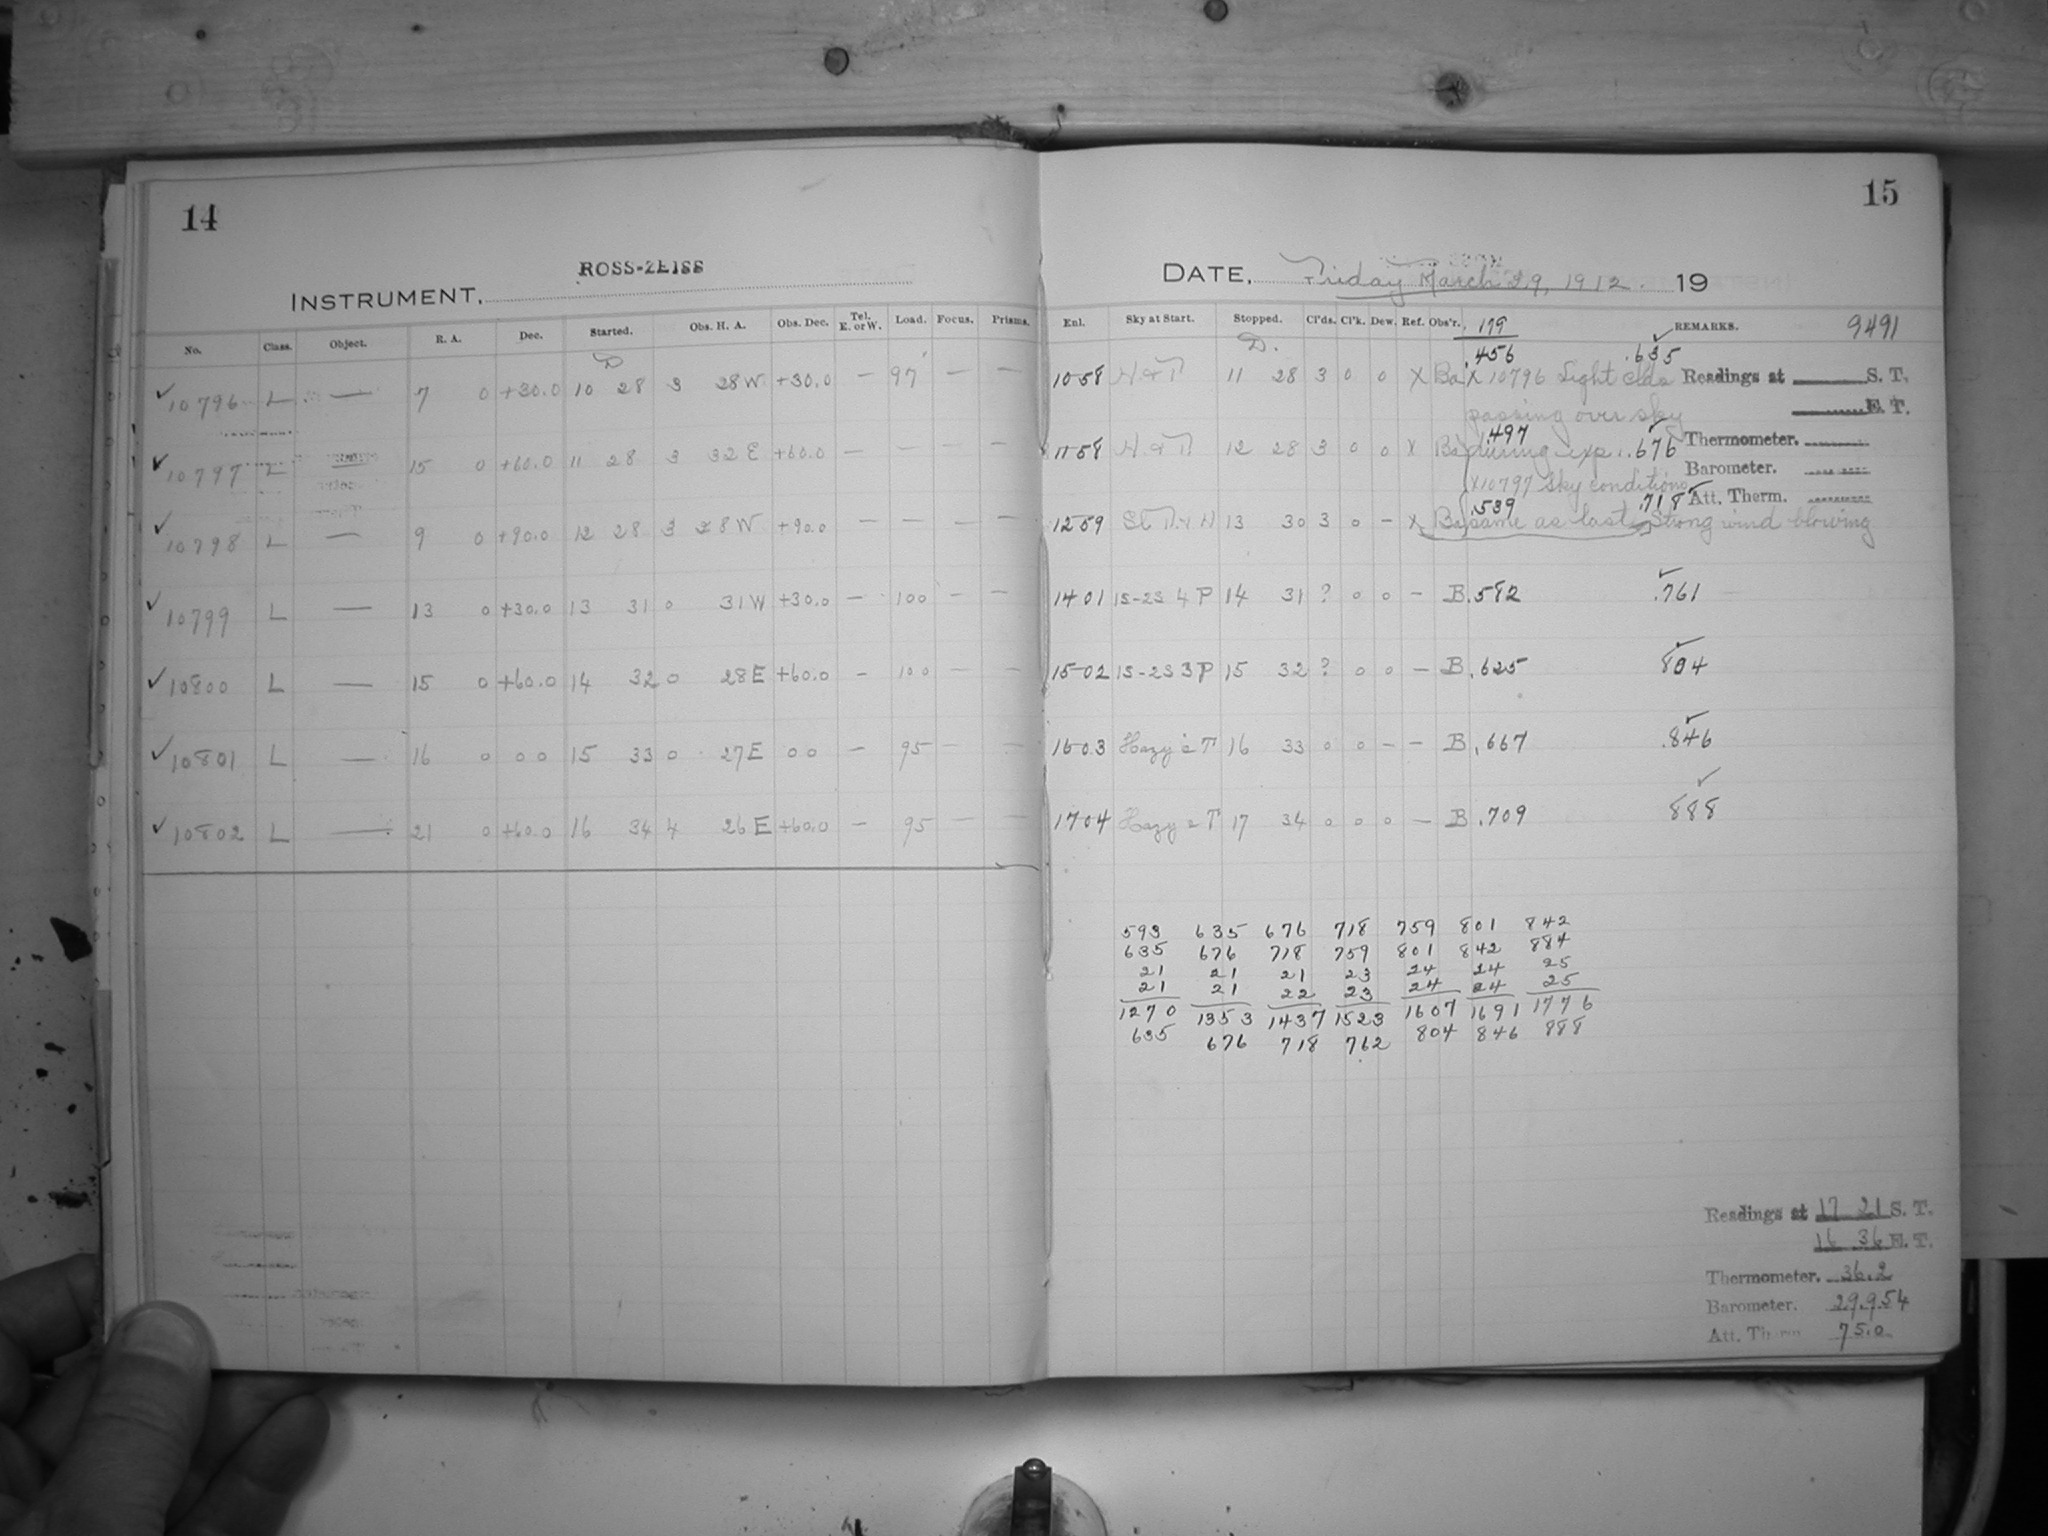 14
ROSS-ZEISS
INSTRUMENT,
No. Class. Object. R. A. Dec. Started. Obs. H. A. Obs. Dec. Tel. E. or W. Load. Focus. Prisms.
D
✓ 10796 L — 7 0 +30.0 10 28 3 28 W +30.0 — 97 — —
✓ 10797 L — 15 0 +60.0 11 28 3 32 E +60.0 — — — —
✓ 10798 L — 9 0 +90.0 12 28 3 28 W +90.0 — — — —
✓ 10799 L — 13 0 +30.0 13 31 0 31 W +30.0 — 100 — —
✓ 10800 L — 15 0 +60.0 14 32 0 28 E +60.0 — 100 — —
✓ 10801 L — 16 0 0 0 15 33 0 27 E 0 0 — 95 — —
✓ 10802 L — 21 0 +60.0 16 34 4 26 E +60.0 — 95 — —
15
DATE, Friday March 29, 1912. 19
Enl. Sky at Start. Stopped. Cl'ds. Cl'k. Dew. Ref. Obs'r. 179 REMARKS. 9491
D. .456 ✓ .635
10 58 H & T 11 28 3 0 0 X Ba X 10796 Light clds Readings at S. T.
passing over sky E. T.
.497 Thermometer.
11 58 H & T 12 28 3 0 0 X Ba during exp. .676
Barometer.
X10797 Sky conditions
.539 .718 ✓ Att. Therm.
12 59 13 30 3 0 — X Ba same as last. Strong wind blowing
14 01 1S-2S 4 P 14 31 ? 0 0 — B .582 ✓ .761
15 02 1S-2S 3 P 15 32 ? 0 0 — B .625 ✓ 804
16 03 Hazy 2 T 16 33 0 0 — — B .667 ✓ .846
17 04 Hazy 2 T 17 34 0 0 0 — B .709 ✓ 888
593 635 676 718 759 801 842
635 676 718 759 801 842 884
21 21 21 23 24 24 25
21 21 22 23 24 24 25
1270 1353 1437 1523 1607 1691 1776
635 676 718 762 804 846 888
Readings at 17 21 S. T.
16 36 E. T.
Thermometer. 36.2
Barometer. 29.954
Att. Therm 75.0